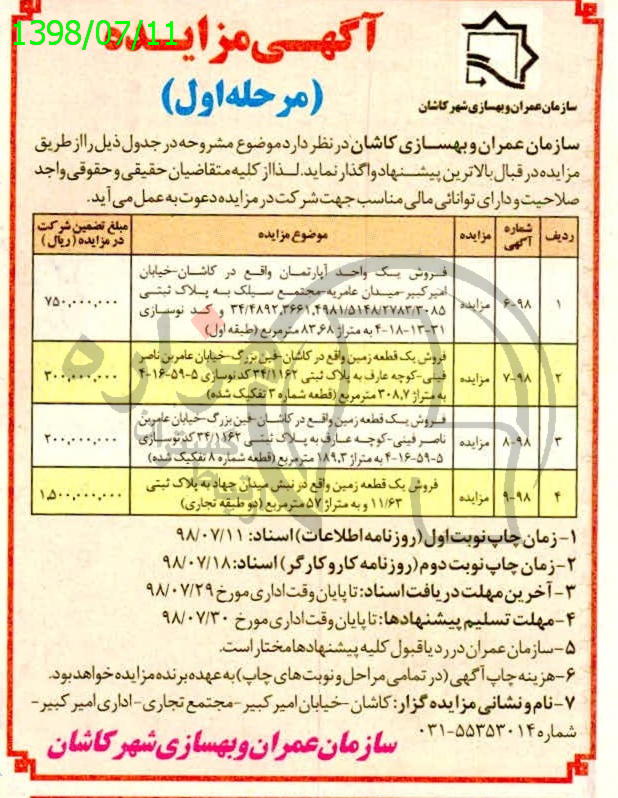 1398/07/11
آگهی مزایده
(مرحله اول)
سازمان عمران و بهسازی شهر کاشان
سازمان عمران و بهسازی کاشان در نظر دارد موضوع مشروحه در جدول ذیل را از طریق
مزایده در قبال بالاترین پیشنهاد واگذار نماید. لذا از کلیه متقاضیان حقیقی و حقوقی واجد
صلاحیت و دارای توانائی مالی مناسب جهت شرکت در مزایده دعوت به عمل می آید.
ردیف شماره آگهی مزایده موضوع مزایده مبلغ تضمین شرکت در مزایده (ریال)
۱ ۶-۹۸ مزایده
فروش یک واحد آپارتمان واقع در کاشان-خیابان
امیرکبیر-میدان عامریه-مجتمع سیلک به پلاک ثبتی
۳۴/۴۸۹۲،۳۶۶۱،۴۹۸۱/۵۱۴۸/۲۷۸۳/۳۰۸۵ و کد نوسازی
۴-۱۸-۱۳-۳۱ به متراژ ۸۳،۶۸ مترمربع (طبقه اول)
۷۵۰،۰۰۰،۰۰۰
۲ ۷-۹۸ مزایده
فروش یک قطعه زمین واقع در کاشان-فین بزرگ-خیابان عامربن ناصر
فینی-کوچه عارف به پلاک ثبتی ۳۴/۱۱۶۲ کدنوسازی ۵-۵۹-۱۶-۴
به متراژ ۳۰۸،۷ مترمربع (قطعه شماره ۳ تفکیک شده)
۳۰۰،۰۰۰،۰۰۰
۳ ۸-۹۸ مزایده
فروش یک قطعه زمین واقع در کاشان-فین بزرگ-خیابان عامربن
ناصر فینی-کوچه عارف به پلاک ثبتی ۳۴/۱۱۶۲ کد نوسازی
۴-۱۶-۵۹-۵ به متراژ ۱۸۹،۳ مترمربع (قطعه شماره ۸ تفکیک شده)
۲۰۰،۰۰۰،۰۰۰
۴ ۹-۹۸ مزایده
فروش یک قطعه زمین واقع در نبش میدان جهاد به پلاک ثبتی
۱۱/۶۳ و به متراژ ۵۷ مترمربع (دو طبقه تجاری)
۱،۵۰۰،۰۰۰،۰۰۰
۱-زمان چاپ نوبت اول (روزنامه اطلاعات) اسناد: ۹۸/۰۷/۱۱
۲-زمان چاپ نوبت دوم (روزنامه کار و کارگر) اسناد: ۹۸/۰۷/۱۸
۳-آخرین مهلت دریافت اسناد: تا پایان وقت اداری مورخ ۹۸/۰۷/۲۹
۴-مهلت تسلیم پیشنهادها: تا پایان وقت اداری مورخ ۹۸/۰۷/۳۰
۵-سازمان عمران در رد یا قبول کلیه پیشنهادها مختار است.
۶-هزینه چاپ آگهی (در تمامی مراحل و نوبت های چاپ) به عهده برنده مزایده خواهد بود.
۷-نام و نشانی مزایده گزار: کاشان-خیابان امیر کبیر-مجتمع تجاری-اداری امیر کبیر-
شماره ۵۵۳۵۳۰۱۴-۰۳۱
سازمان عمران و بهسازی شهر کاشان